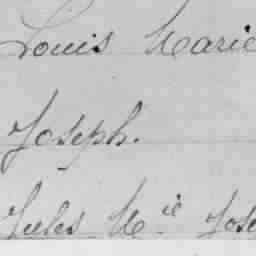 Louis Marie
Joseph.
Jules M.ie Jose